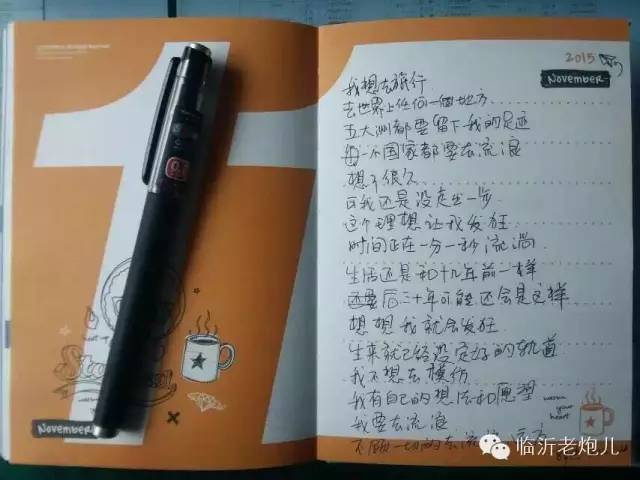 11
November
2015
November
我想去旅行
去世界上任何一個地方
五大洲都要留下我的足迹
每一个国家都要去流浪
想了很久
可我还是没走出一步
这个理想让我发狂
时间正在一分一秒流淌
生活还是和十几年前一样
后二十年可能还会是这样
想想我就会发狂
生来就已经设定好的轨道
我不想去模仿
我有自己的想法和愿望
我要去流浪
不顾一切的去流浪
warm
your
heart
临沂老炮儿